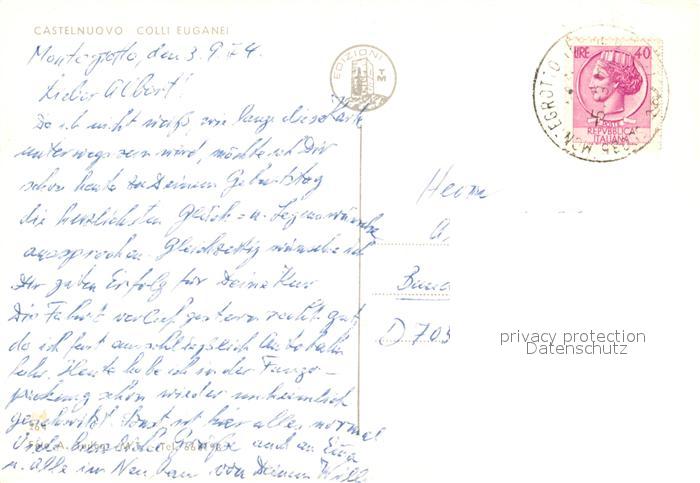 CASTELNUOVO COLLI EUGANEI
Montegrotto, den 3.9.74.
Lieber Albert!
Da ich nicht weiß, wie lange diese Karte
unterwegs sein wird, möchte ich Dir
schon heute zu Deinem Geburtstag
die herzlichsten Glück- u. Segenswünsche
aussprechen. Gleichzeitig wünsche ich
Dir guten Erfolg für Deine Kur
Die Fahrt verlief gestern recht gut,
da ich fast ausschließlich Autobahn
fuhr. Heute habe ich in der Fango-
packung schon wieder unheimlich
geschwitzt. Sonst ist hier alles normal
Viele herzliche Grüße auch an
u. alle im Neubau von Deinem Willi
EDIZIONI
LIRE 40
POSTE
REPVBBLICA
ITALIANA
Herrn
D 703
privacy protection
Datenschutz